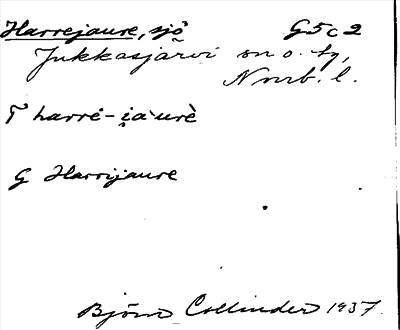 Harrejaure, sjö G5c2
Jukkasjärvi sn o. tg,
Nnrb. l.
T harrè-i̯a`urè
G Harrijaure
Björn Collinder 1937.